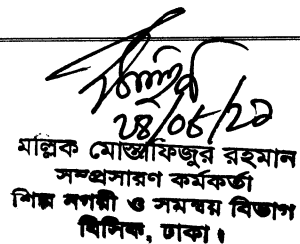 ২৪/০৮/২১
মল্লিক মোস্তাফিজুর রহমান
সম্প্রসারণ কর্মকর্তা
শিল্প নগরী ও সমন্বয় বিভাগ
বিসিক, ঢাকা।